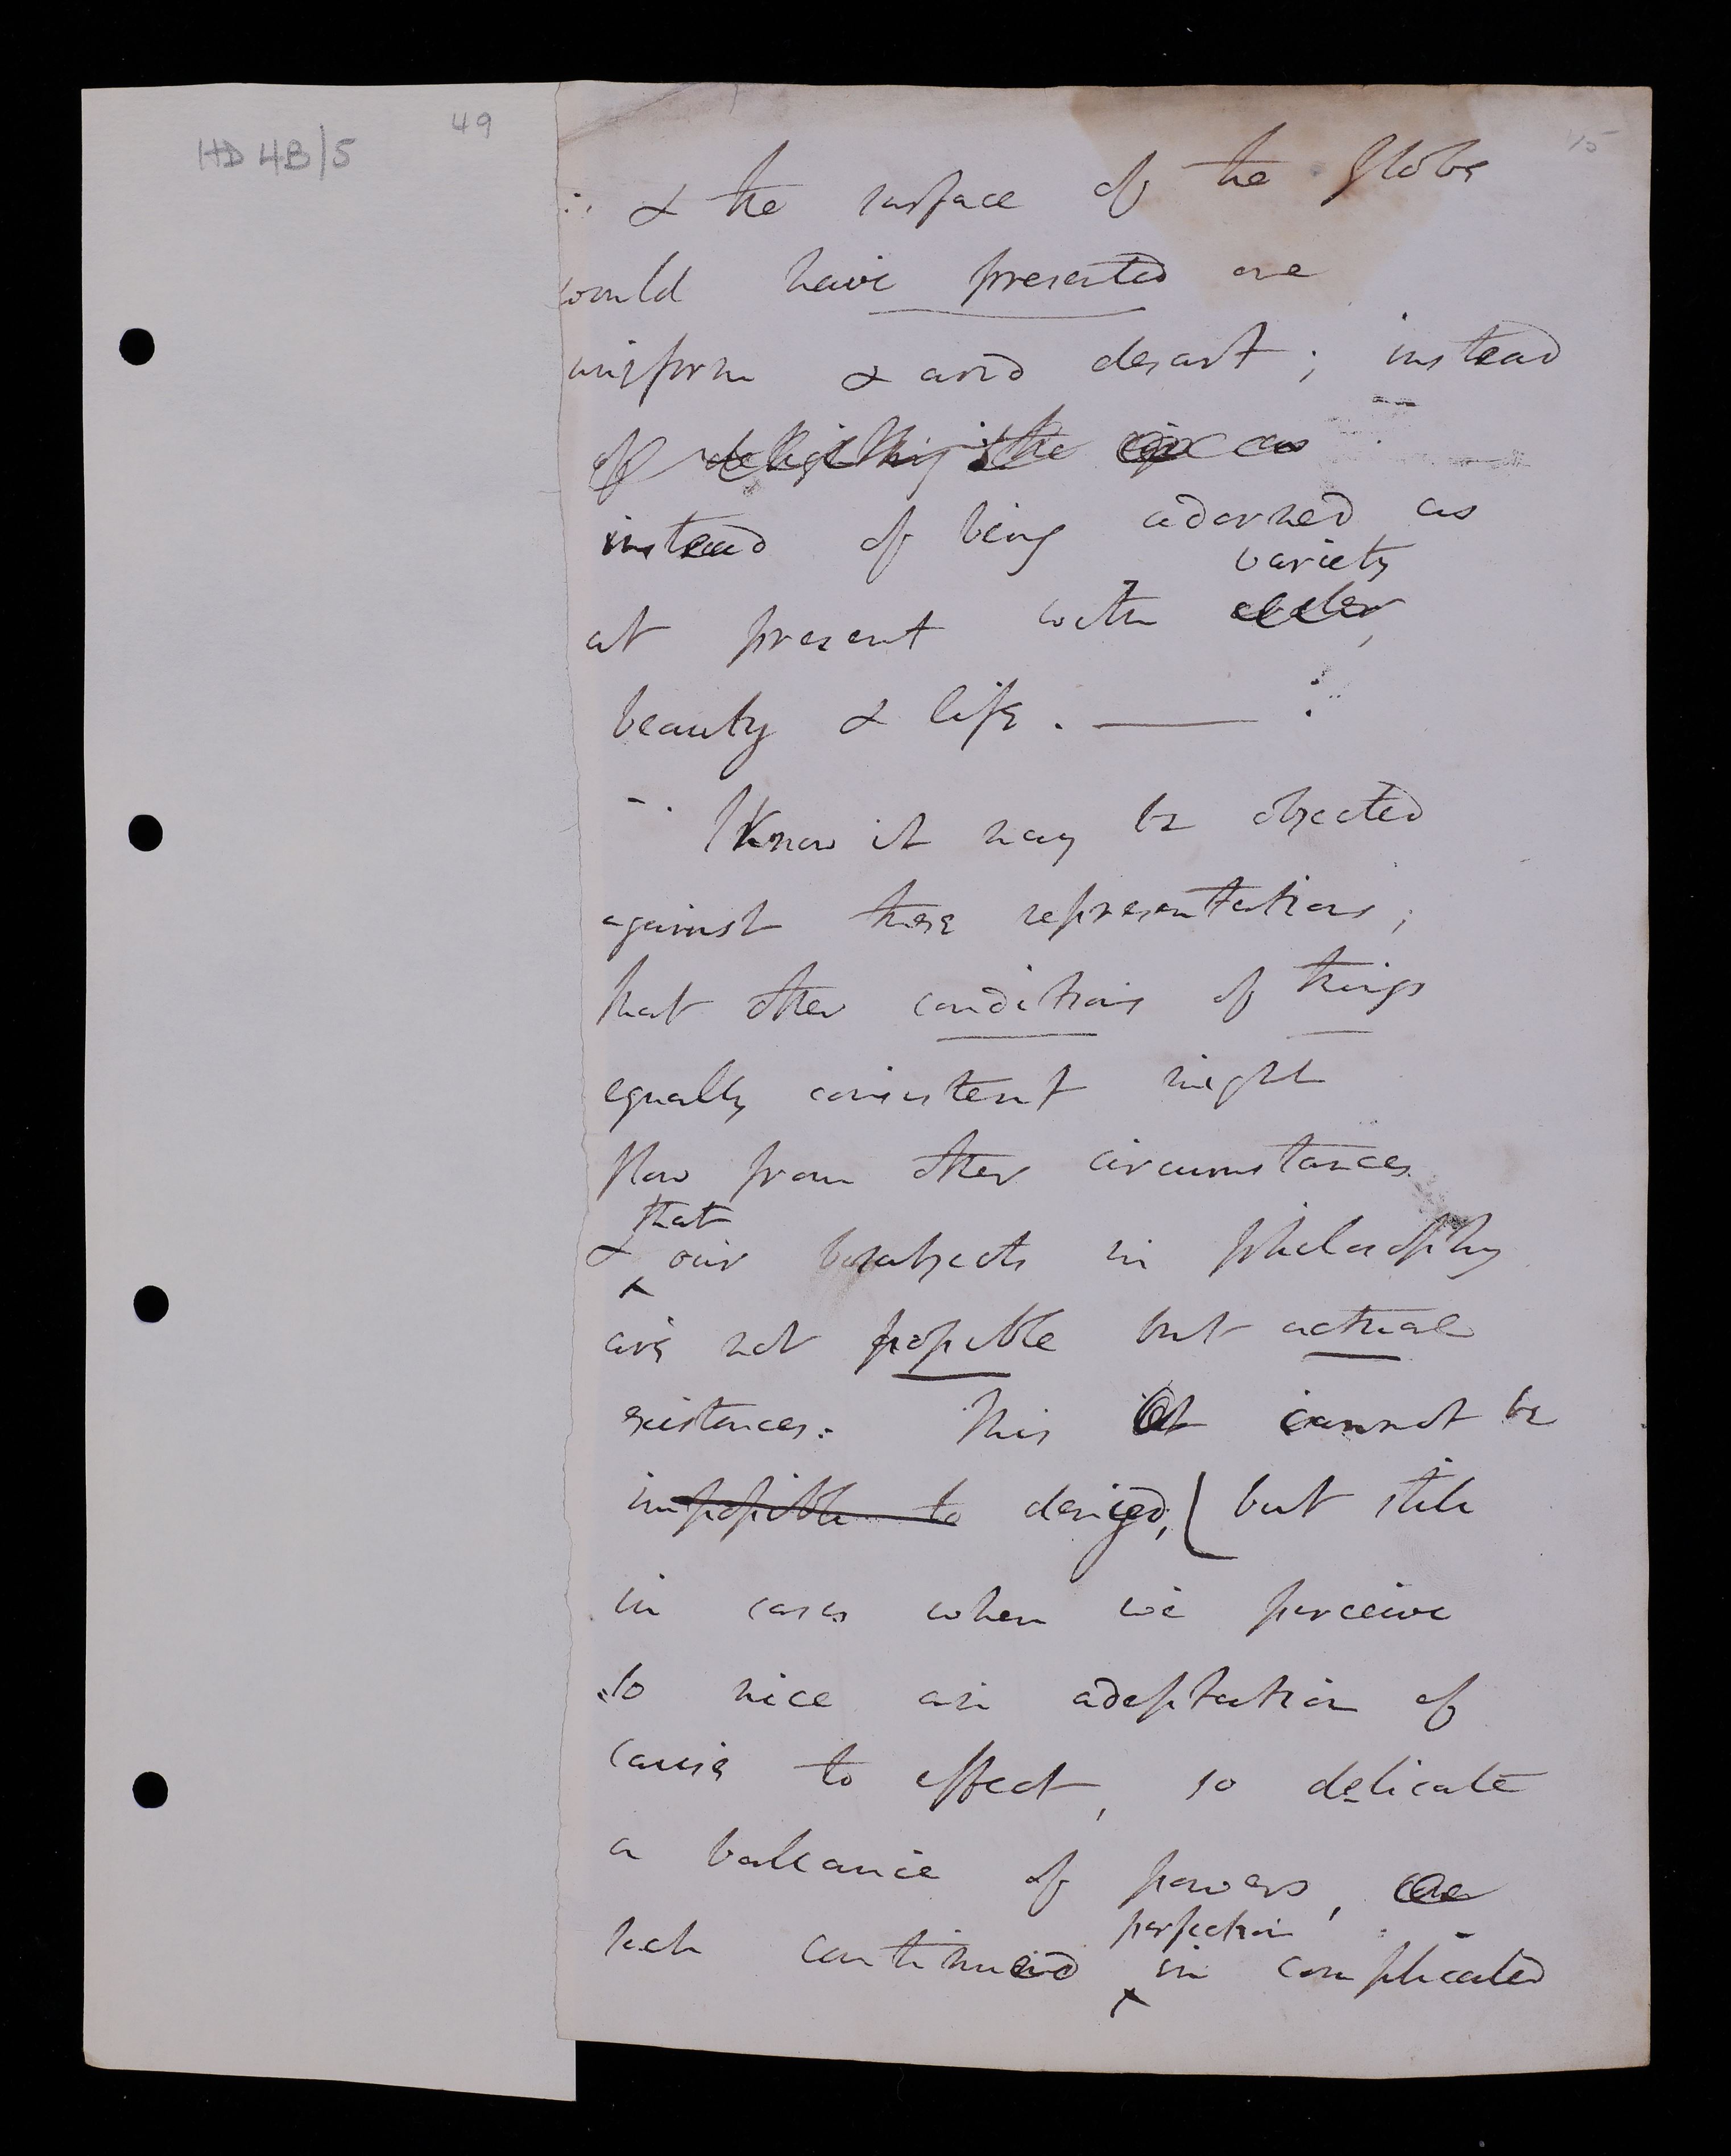 HD 4B/5
49
& the surface of the Globe
would have presented one
uniform & arid desart; instead
of delighting the eye as
instead of being adorned as
variety
at present with
beauty & life. —
I know it may be objected
against these representations;
that other conditions of things
equally consistent might
flow from other circumstances
that
& our subjects in philosophy
are not possible but actual
existences: This it cannot be
impossible to denied, but still
in cases when we perceive
so nice an adaptation of
cause to effect, so delicate
a ballance of powers,
such continued in complicated
perfection